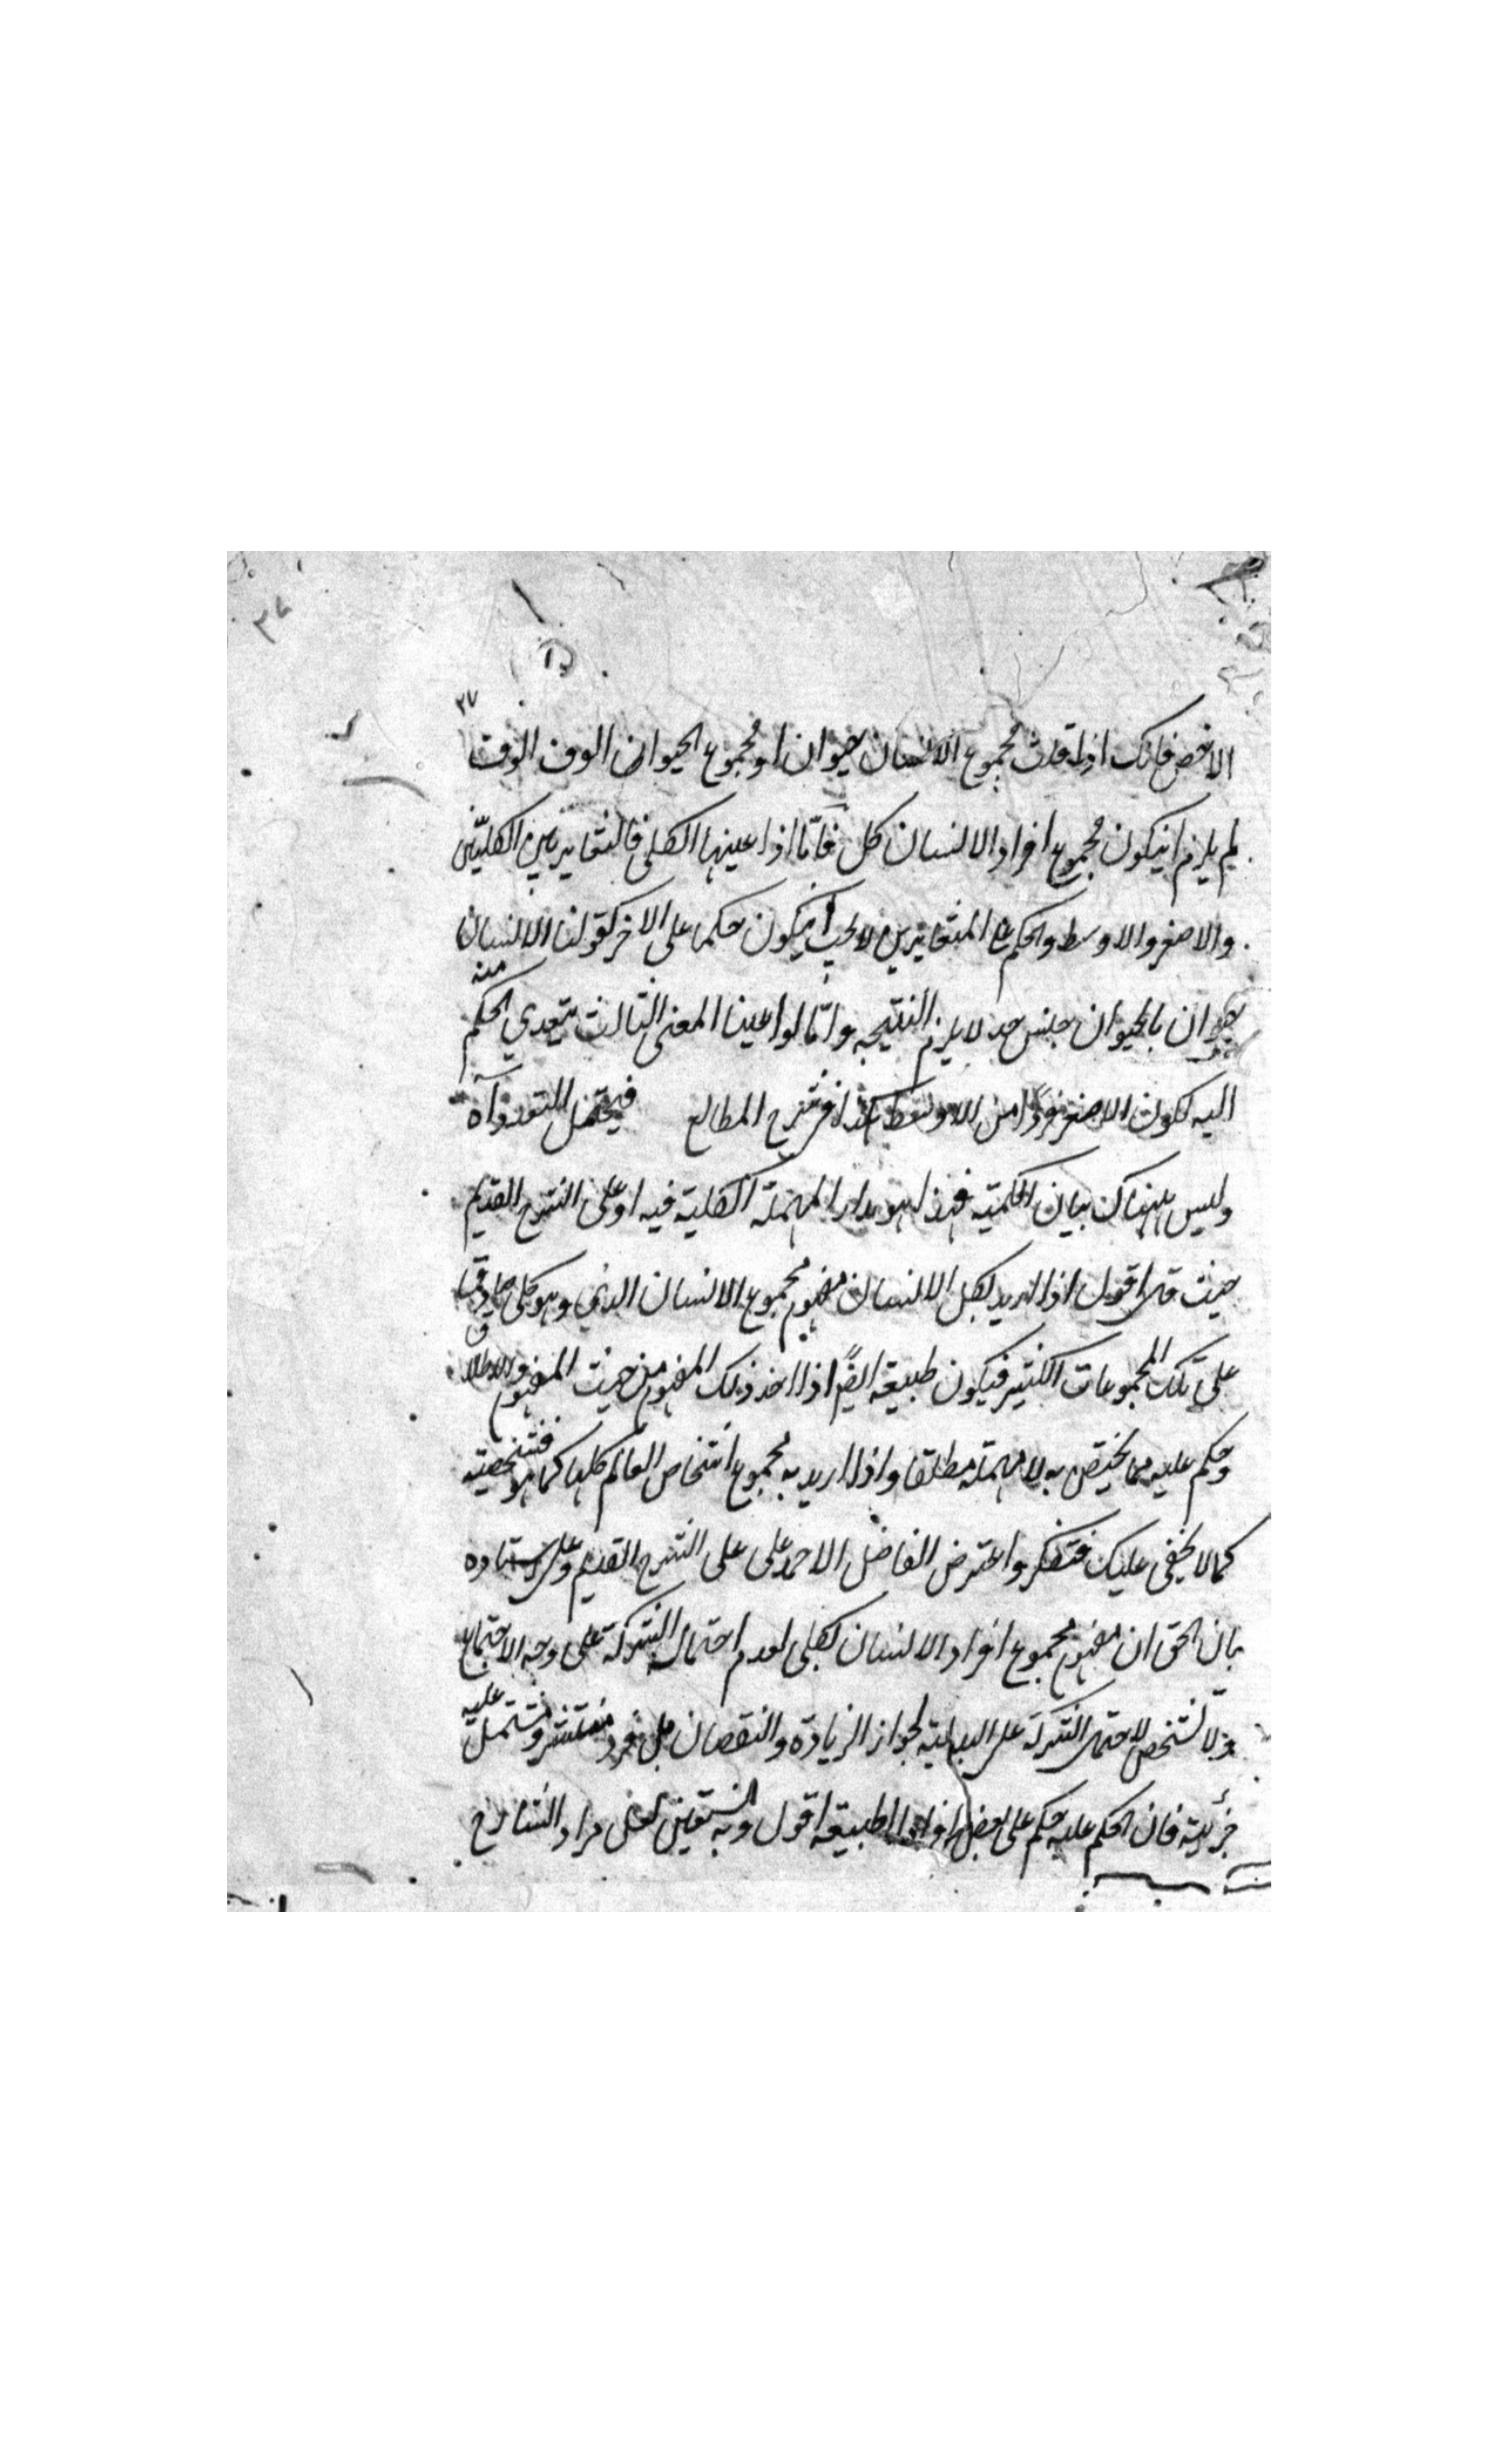 ٣٧
الاخص فانك اذا قلت مجموع الانسان حيوان او مجموع الحيوان الوف الوف
لم يلزم انيكون مجموع افراد الانسان كل فامّا اذا عينها الكلى فالتغاير بين الكليّين
والاصغر والاوسط والحكم على المتغايرين لا يجب انيكون حكما على الاخر كقولنا الانسان
حيوان بالحيوان جنس حد لا يلزم النتيجه وامّا لوا عينا المعنى الثالث يتعدي الحكم منه
اليه لكون الاصغر فردًا من الاوسط كذا فى شرح المطالع فيحتمل التعدد آه
وليس هناك بيان الكميّه فهذا هو مدار المهملة الكلية فيه او على الشرح القديم
حيث قال اقول اذا اريد بكل الانسان مفهوم مجموع الانسان الذي وهو كلى صادق
على تلك المجموعات الكثير فيكون طبيعة ايضًا اذا اخذ ذلك المفهوم من حيث المفهوم والاطلاق
وحكم عليه مما يختص به لا مهملة مطلقا واذا اريد به مجموع اشخاص العالم كلها كما هو فشخصيته
كما لا يخفى عليك فتفكر واعترض الفاضل الاحمد على على الشرح القديم وعلى استاده
بان الحق ان مفهوم مجموع افراد الانسان لكلى لعدم احتمال الشركة على وجه الاجتماع
ولا تشخص لاحتمال الشركة على البدلية لجواز الزيادة والنقصان بل فرد منتشر ومشتمل عليه
جزئية فان الحكم عليه حكم على بعض افراد الطبيعة اقول وبه نستعين لعل مراد الشارح